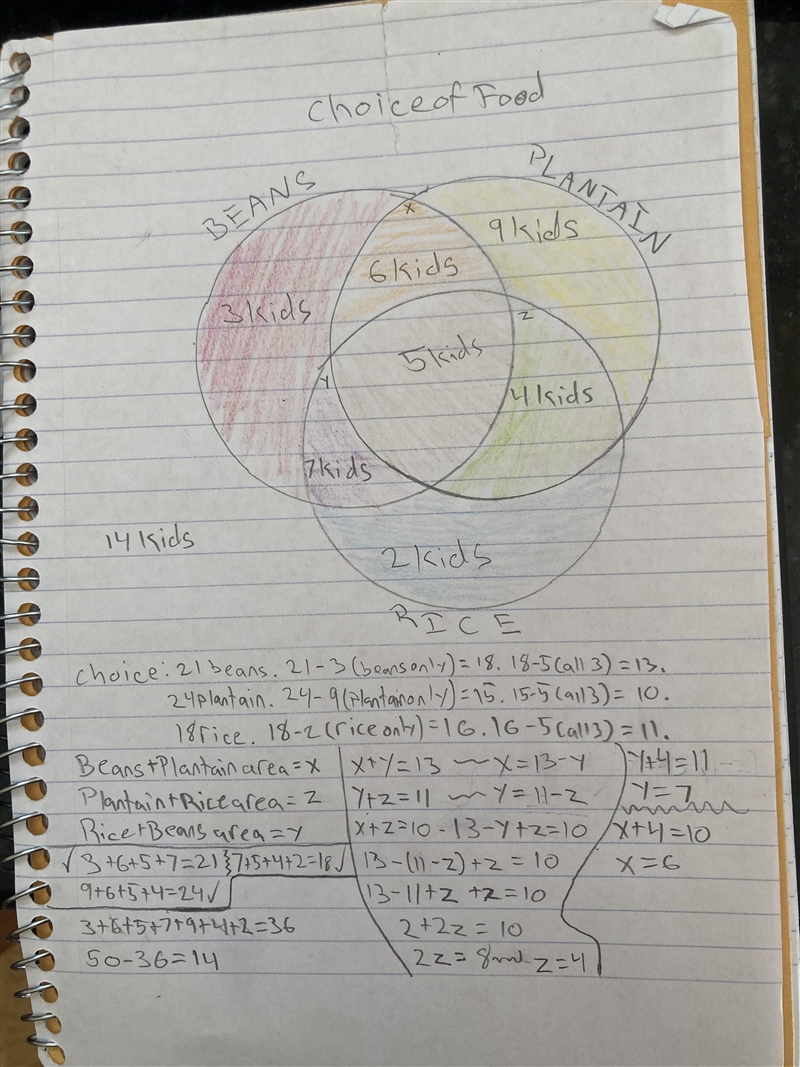 Choice of Food
BEANS
PLANTAIN
x
9 kids
6 kids
3 kids
z
5 kids
y
4 kids
7 kids
14 kids
2 kids
RICE
choice: 21 beans. 21-3 (beans only)=18. 18-5(all 3)=13.
24 plantain. 24-9(plantain only)=15. 15-5(all 3)=10.
18 rice. 18-2(rice only)=16. 16-5(all 3)=11.
Beans+Plantain area=x
Plantain+Rice area=z
Rice+Beans area=y
√ 3+6+5+7=21 } 7+5+4+2=18 √
9+6+5+4=24 √
3+6+5+7+9+4+2=36
50-36=14
x+y=13 ~ x=13-y
y+z=11 ~ y=11-z
x+z=10 - 13-y+z=10
13-(11-z)+z=10
13-11+z+z=10
2+2z=10
2z=8 ~ z=4
y+4=11
y=7
x+4=10
x=6